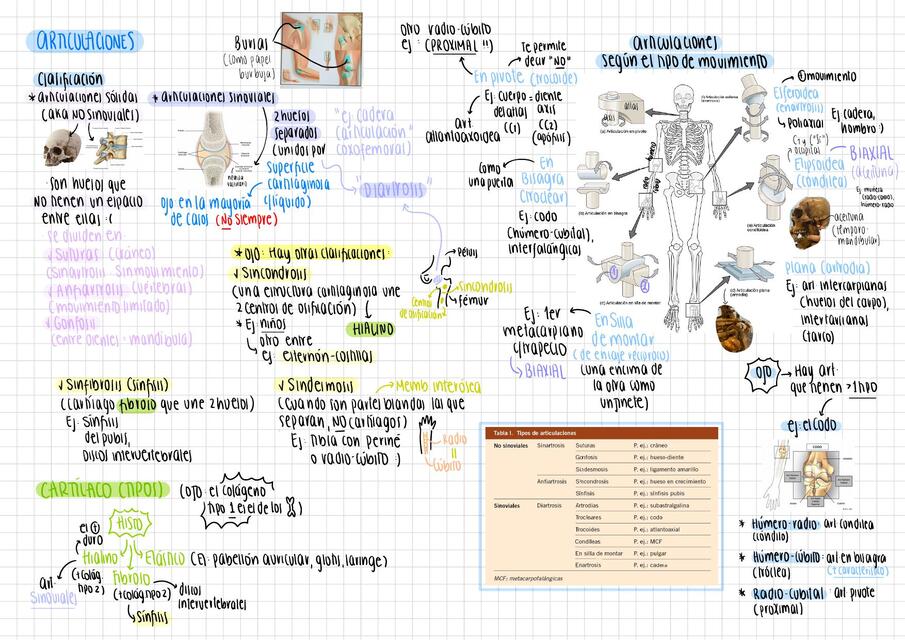 ARTICULACIONES
Clasificación
* articulaciones sólidas
(aka NO sinoviales)
son huesos que
NO tienen un espacio
entre ellas :(
se dividen en:
√ Suturas (cráneo)
(sinartrosis - sin movimiento)
√ Anfiartrosis (vertebral)
(movimiento limitado)
√ Gonfosis
(entre dientes - mandíbula)
Bursas
(como papel
burbuja)
* articulaciones sinoviales
2 huesos
separados
(unidos por
Superficie
cartilaginosa
(líquido)
OJO en la mayoría
de casos (NO siempre)
"ej cadera
(articulación)
coxofemoral)
"Diartrosis"
* OJO: Hay otras clasificaciones:
√ Sincondrosis
(una estructura cartilaginosa une
2 centros de osificación)
* Ej niños
HIALINO
otro entre
ej: esternón-costillas
Pelvis
Sincondrosis
fémur
Centro
de osificación
√ Sinfibrosis (sínfisis)
(cartílago fibroso que une 2 huesos)
Ej: Sínfisis
del pubis,
discos intervertebrales
√ Sindesmosis
Memb. interósea
(cuando son partes blandas las que
separan, NO cartílagos)
Ej: Tibia con peroné
o radio-cúbito :)
Radio
Cúbito
CARTÍLAGO (TIPOS)
(OJO: el colágeno
tipo 1 es el de los
HISTO
el
duro
Hialino
(+ colág.
tipo 2)
art.
Sinoviales
Elástico (Ej: pabellón auricular, glotis, laringe)
Fibroso
(+ colág tipo 2)
discos
intervertebrales
Sínfisis
otro radio-cúbito
ej: (PROXIMAL!!)
Te permite
decir "NO"
En pivote (trocoide)
Ej: cuerpo = diente
atlas axis
(C1) (C2)
(apófisis)
Art.
atlantoaxoidea
Como
una puerta
En
Bisagra
(troclear)
Ej: codo
(húmero-cubital),
interfalángicas
Ej: 1er
metacarpiano
y trapecio
BIAXIAL
En Silla
de montar
(de encaje recíproco)
(una encima de
la otra como
un jinete)
articulaciones
según el tipo de movimiento
(a) Articulación en pivote
(b) Articulación en bisagra
(c) Articulación en silla de montar
① movimiento
Esferoidea
(enartrosis)
Poliaxial
Ej cadera,
hombro :)
Elipsoidea
(condílea)
BIAXIAL
Ej: muñeca
aceituna
(temporo-
mandibular)
Plana (artrodia)
Ej: art intercarpianas
(huesos del carpo),
intertarsianas
(tarso)
OJO
Hay art.
que tienen >1 tipo
ej: el codo
CODO
* Húmero-radio: art condílea
(cóndilo)
* Húmero-cúbito: art en bisagra
(tróclea) (+ característico)
* Radio-cubital: art pivote
(proximal)
Tabla I. Tipos de articulaciones
No sinoviales Sinartrosis Suturas P. ej.: cráneo
Gonfosis P. ej.: hueso-diente
Sindesmosis P. ej.: ligamento amarillo
Anfiartrosis Sincondrosis P. ej.: hueso en crecimiento
Sínfisis P. ej.: sínfisis pubis
Sinoviales Diartrosis Artrodias P. ej.: subastragalina
Trocleares P. ej.: codo
Trocoides P. ej.: atloantoaxial
Condíleas P. ej.: MCF
En silla de montar P. ej.: pulgar
Enartrosis P. ej.: cadera
MCF: metacarpofalángicas